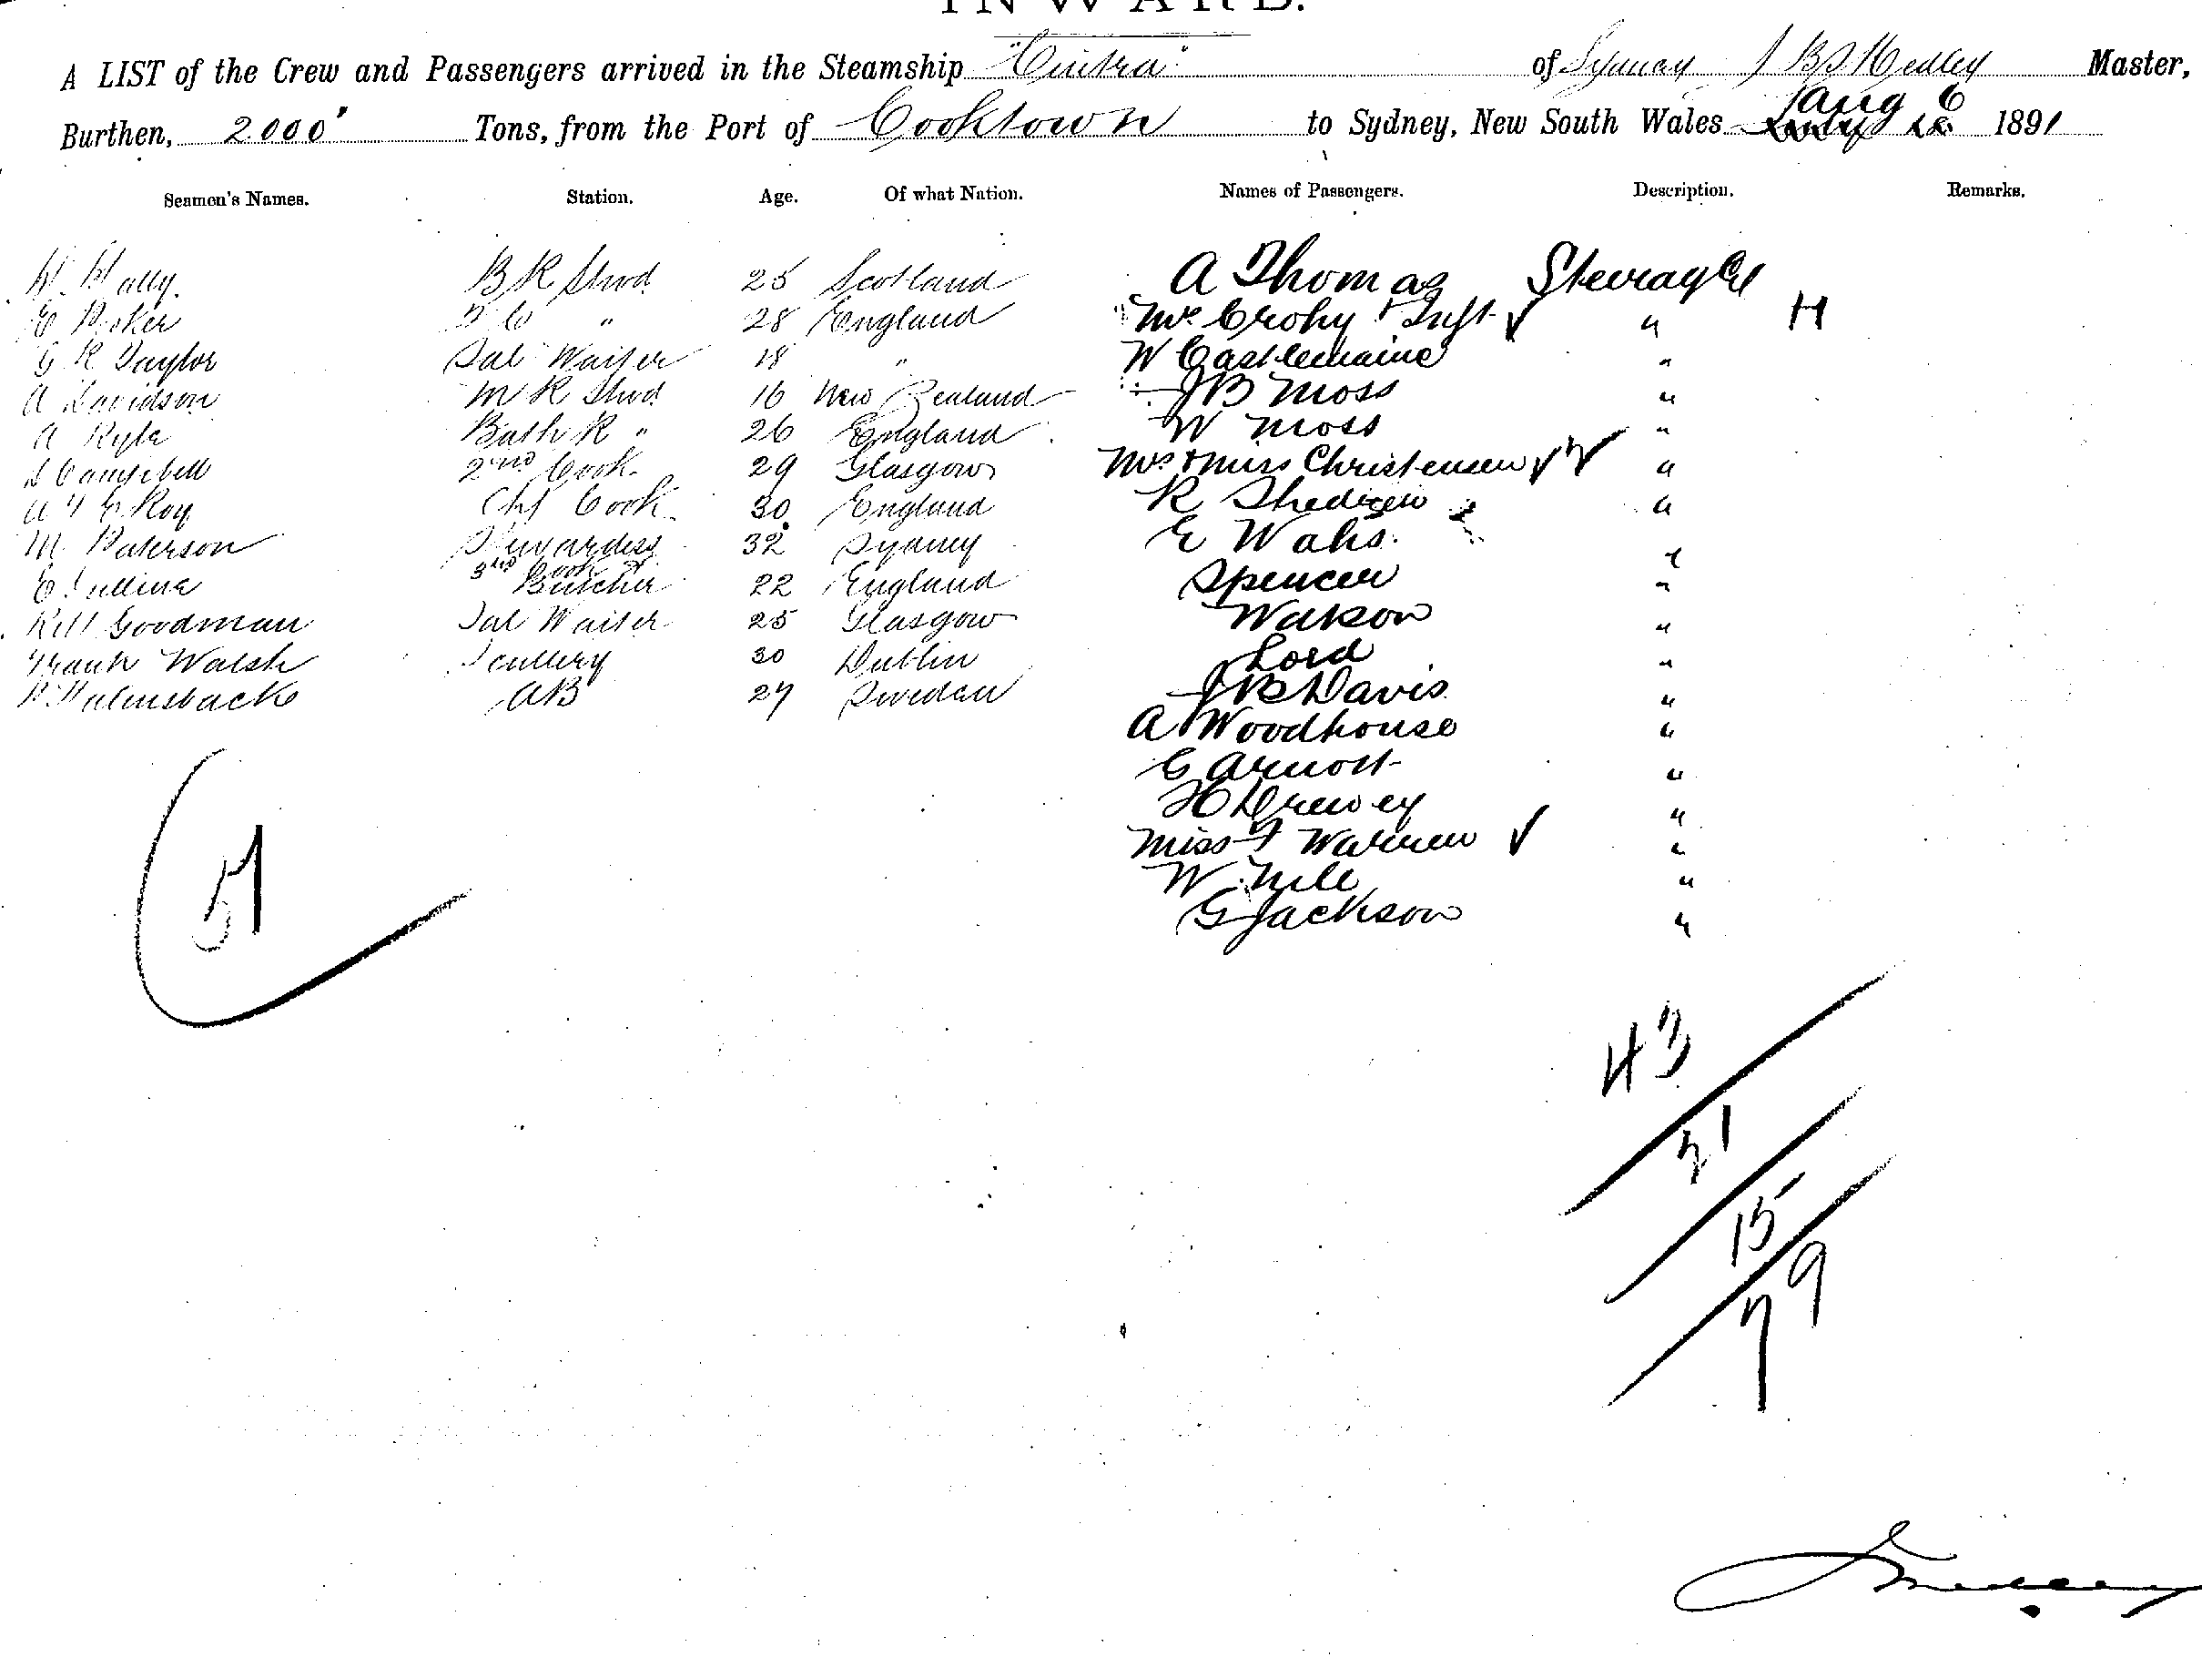 INWARD.
A LIST of the Crew and Passengers arrived in the Steamship "Cintra" of Sydney J B S Medley Master,
Burthen, 2000 Tons, from the Port of Cooktown to Sydney, New South Wales Aug 6 1891
Seamen's Names. Station. Age. Of what Nation. Names of Passengers. Description. Remarks.
B R Stwd 25 Scotland A Thomas Steerage
28 England Mrs Crohy + Inft " H
G R Taylor Sal Waiter 18 " W Castlemaine "
A Davidson M R Stwd 16 New Zealand J B Moss "
A Ryle Bath R " 26 England W Moss "
Campbell 2nd Cook 29 Glasgow Mrs + Miss Christensen "
Roy Chf Cook 30 England R "
M Paterson Stewardess 32 Sydney E "
3rd Cook &
Butcher 22 England Spencer "
Goodman Sal Waiter 25 Glasgow Watson "
Frank Walsh Scullery 30 Dublin Lord "
AB 27 Sweden J B Davis "
A Woodhouse "
"
H Drewey "
Miss F Warren "
W "
G Jackson "
51
43
21
15
79